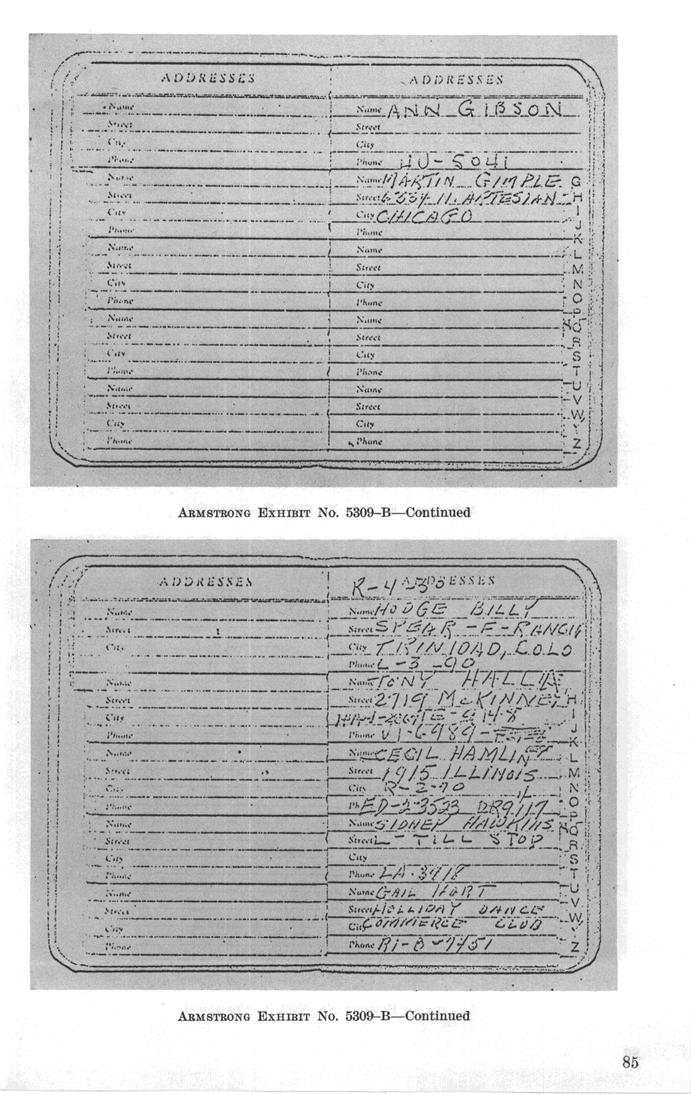 ADDRESSES
Name
Street
City
Phone
Name
Street
City
Phone
Name
Street
City
Phone
Name
Street
City
Phone
Name
Street
City
Phone
ADDRESSES
Name ANN GIBSON
Street
City
Phone HU-5041
Name MARTIN GIMPLE
Street N. ARTESIAN
City CHICAGO
Phone
Name
Street
City
Phone
Name
Street
City
Phone
Name
Street
City
Phone
G
H
I
J
K
L
M
N
O
P
Q
R
S
T
U
V
W
Y
Z
ARMSTRONG EXHIBIT No. 5309-B—Continued
ADDRESSES
Name
Street
City
Name
Street
City
Phone
Name
Street
City
Phone
Name
Street
City
Phone
Name
Street
City
Phone
ADDRESSES
R-4
Name HODGE BILLY
Street SPEAR-F-RANCH
City TRINIDAD, COLO
Phone L-3-90
Name TONY
Street 2719 McKINNEY
Phone
Name CECIL HAMLIN
Street 1915 ILLINOIS
City R-2-70
Ph ED-2-3523 DR9117
Name SIDNEY HAWKINS
Street L-TILL STOP
City
Phone LA-3718
Name GAIL HART
Street HOLLIDAY DANCE
City COMMERCE CLUB
Phone RI-8-7451
H
I
J
K
L
M
N
O
P
Q
R
S
T
U
V
W
Y
Z
ARMSTRONG EXHIBIT No. 5309-B—Continued
85